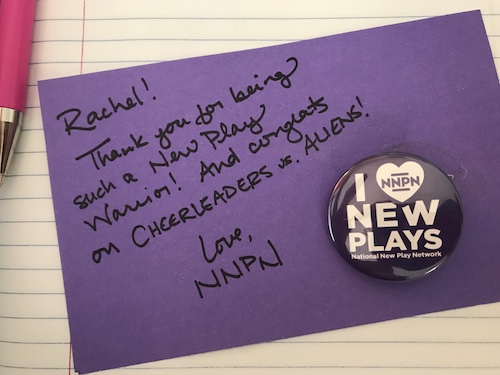 Rachel!
Thank you for being
such a New Play
Warrior! And congrats
on CHEERLEADERS vs. ALIENS!
Love,
NNPN
I NNPN
NEW
PLAYS
National New Play Network